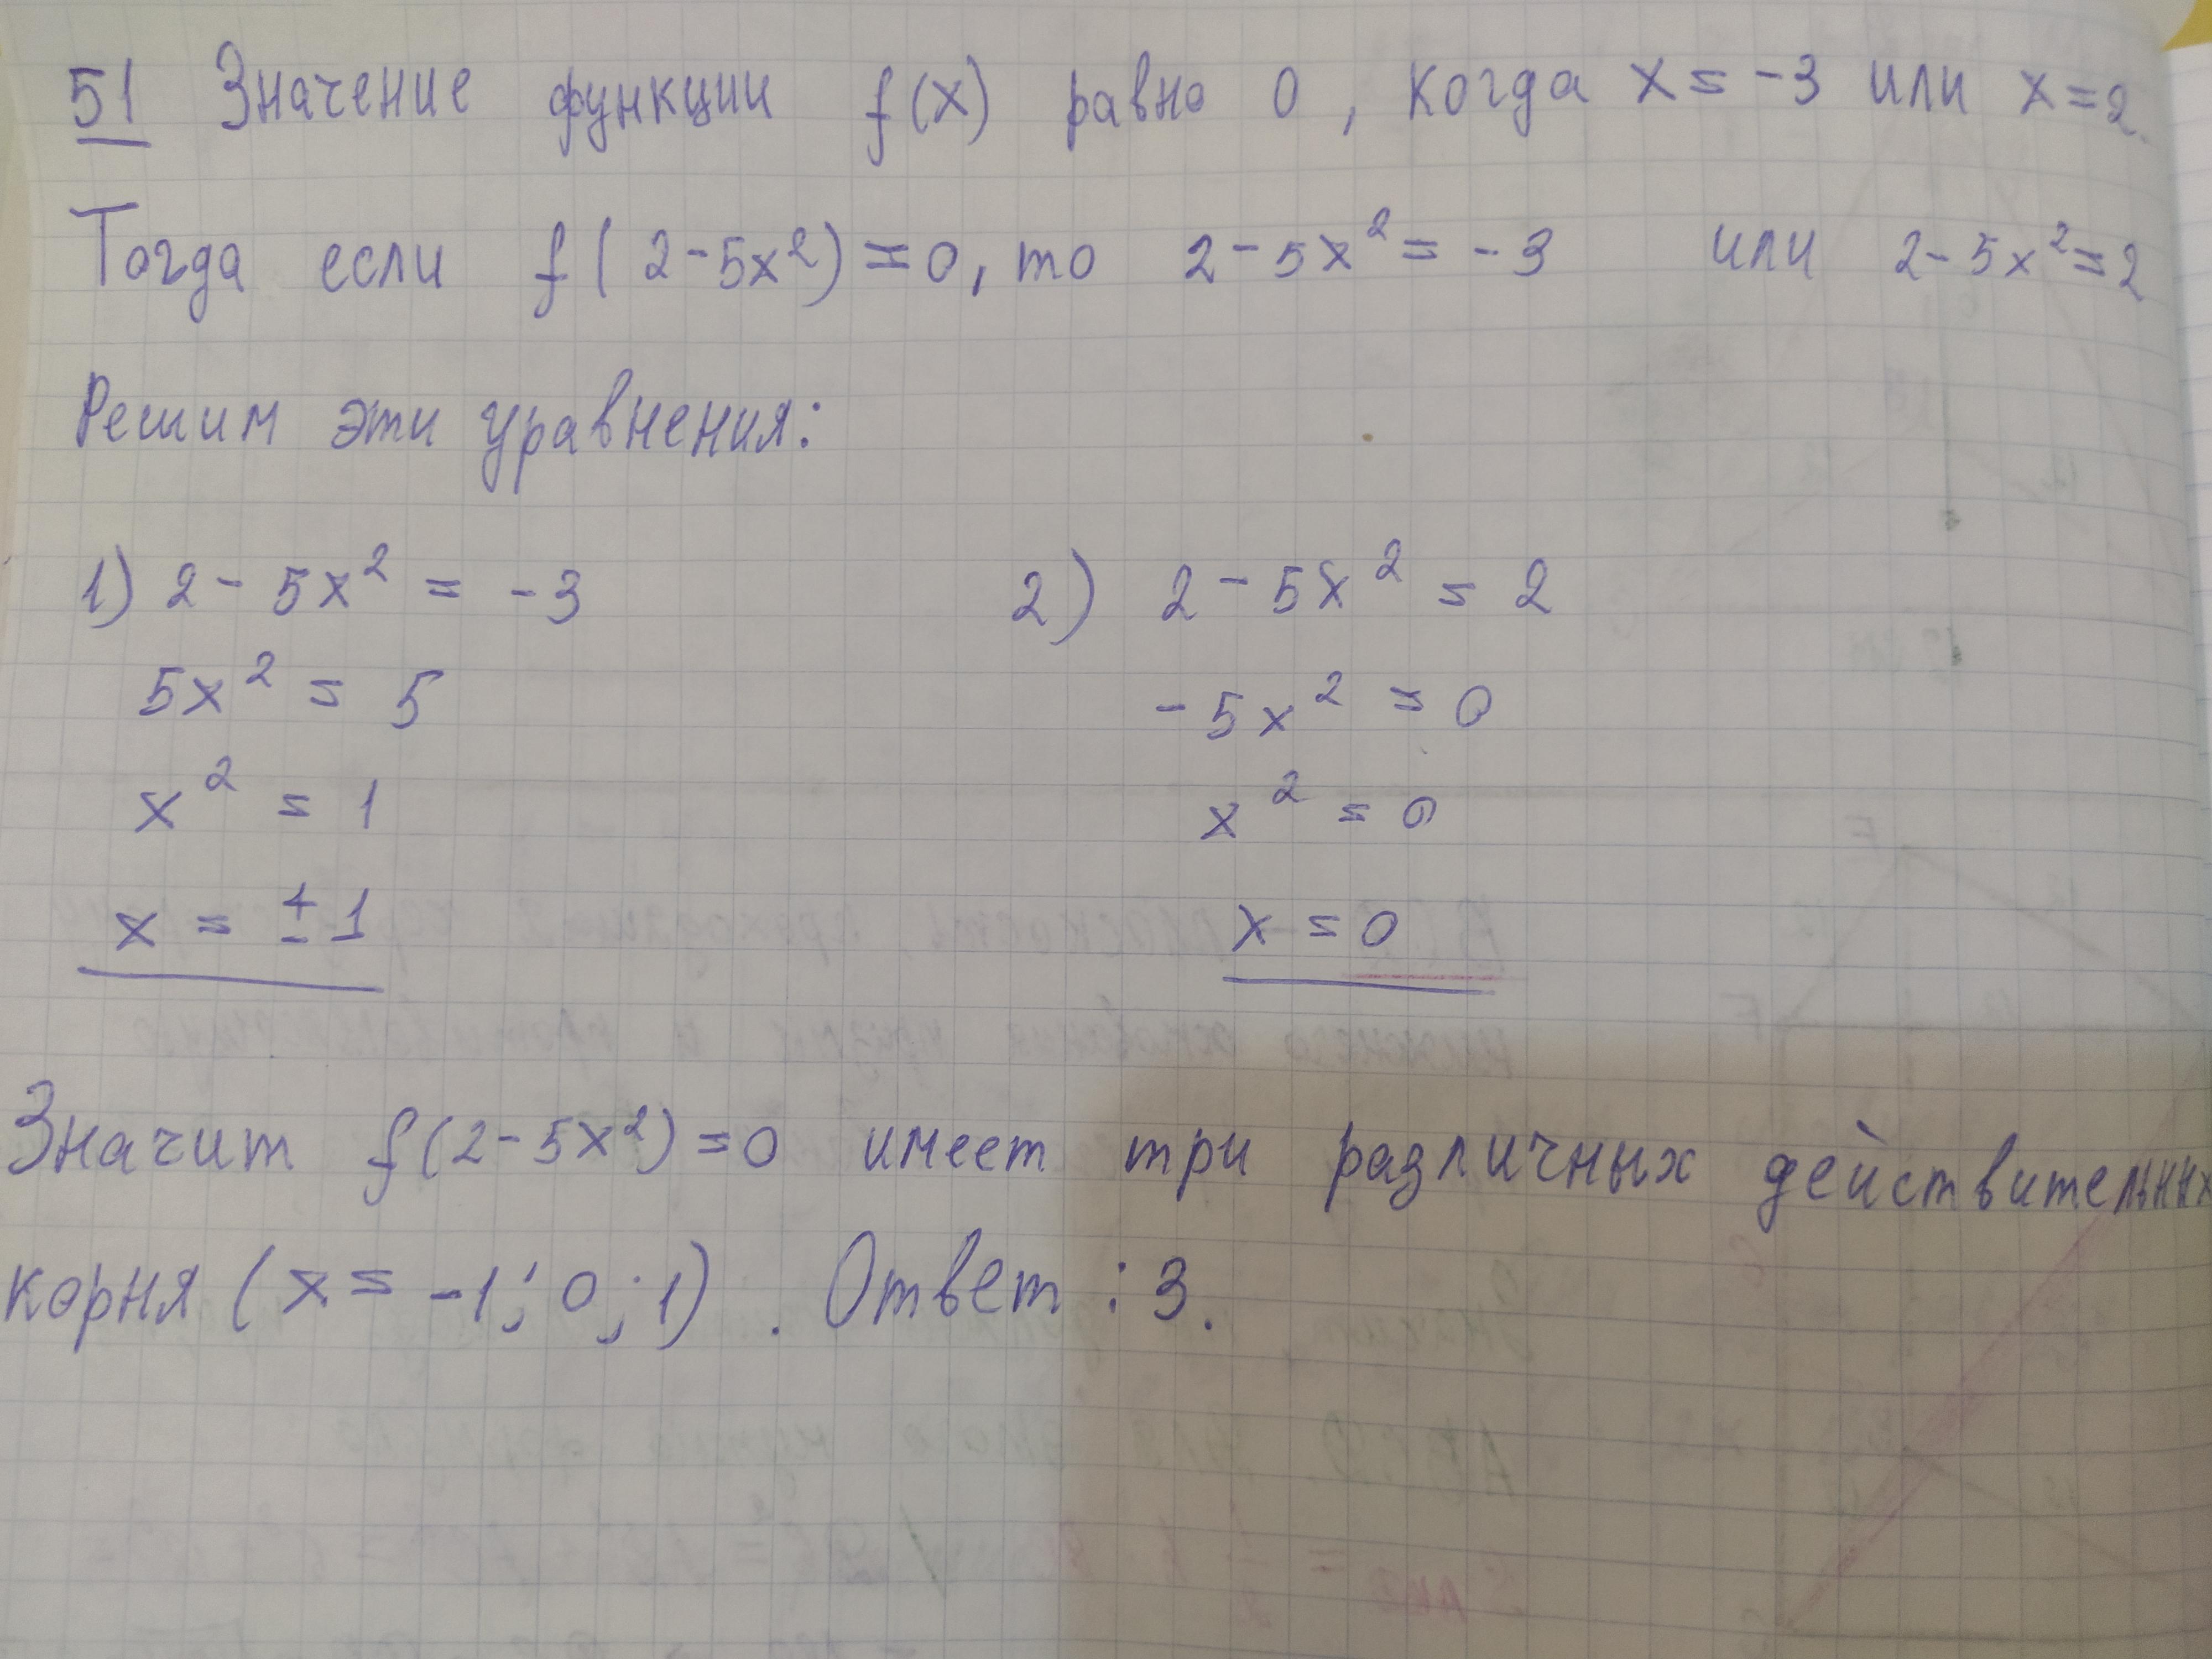 51 Значение функции f(x) равно 0, когда x = -3 или x = 2.
Тогда если f(2-5x²)=0, то 2-5x² = -3 или 2-5x²=2
Решим эти уравнения:
1) 2 - 5x² = -3 2) 2 - 5x² = 2
5x² = 5 -5x² = 0
x² = 1 x² = 0
x = ±1 x = 0
Значит f(2-5x²)=0 имеет три различных действительных
корня (x = -1; 0; 1). Ответ: 3.